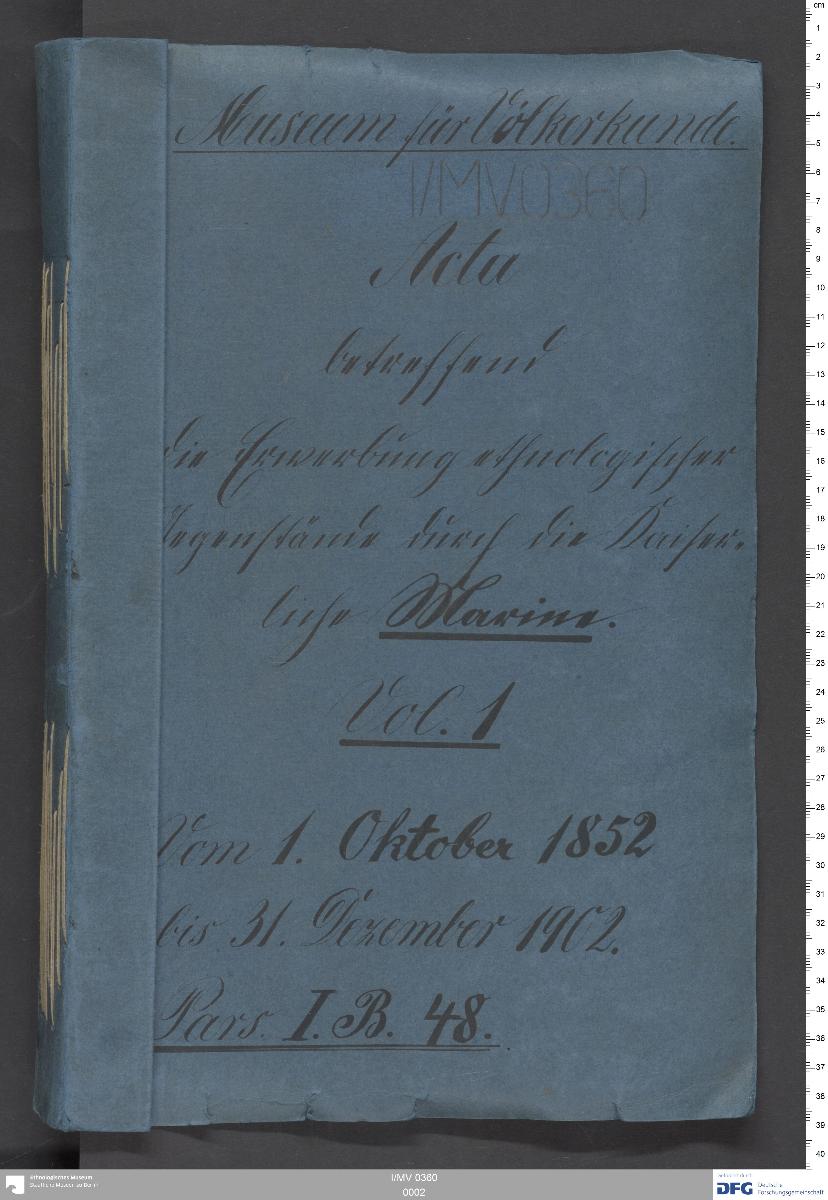 Museum für Völkerkunde.
I/MV 0360
Acta
betreffend
die Erwerbung ethnologischer
Gegenstände durch die Kaiser-
liche Marine.
Vol. 1
Vom 1. Oktober 1852
bis 31. Dezember 1902.
Pars. I. B. 48.
cm
1
2
3
4
5
6
7
8
9
10
11
12
13
14
15
16
17
18
19
20
21
22
23
24
25
26
27
28
29
30
31
32
33
34
35
36
37
38
39
40
Ethnologisches Museum
Staatliche Museen zu Berlin
I/MV 0360
0002
Gefördert durch
DFG Deutsche
Forschungsgemeinschaft